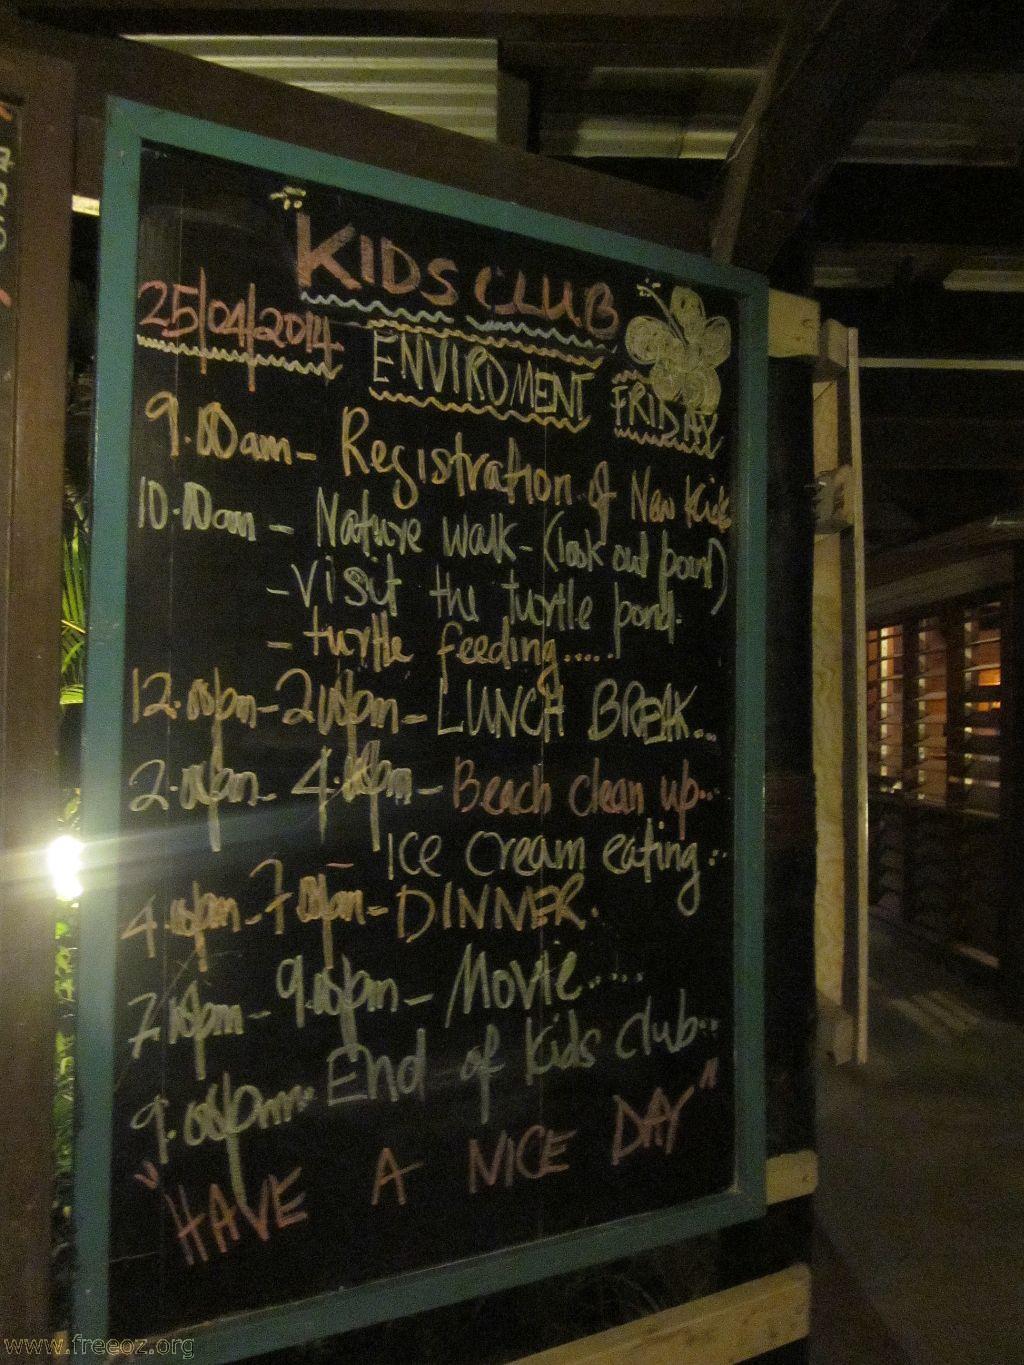 KIDS CLUB
25/04/2014
ENVIROMENT
FRIDAY
9.00am - Registration of New Kids
10.00am - Nature walk - (look out point)
- Visit the turtle pond.
- turtle feeding.....
12.00pm - 2.00pm - LUNCH BREAK...
2.00pm - 4.00pm - Beach clean up...
Ice cream eating...
4.00pm - 7.00pm - DINNER.
7.00pm - 9.00pm - Movie.....
9.00pm. End of Kids club...
"HAVE A NICE DAY"
www.freeoz.org